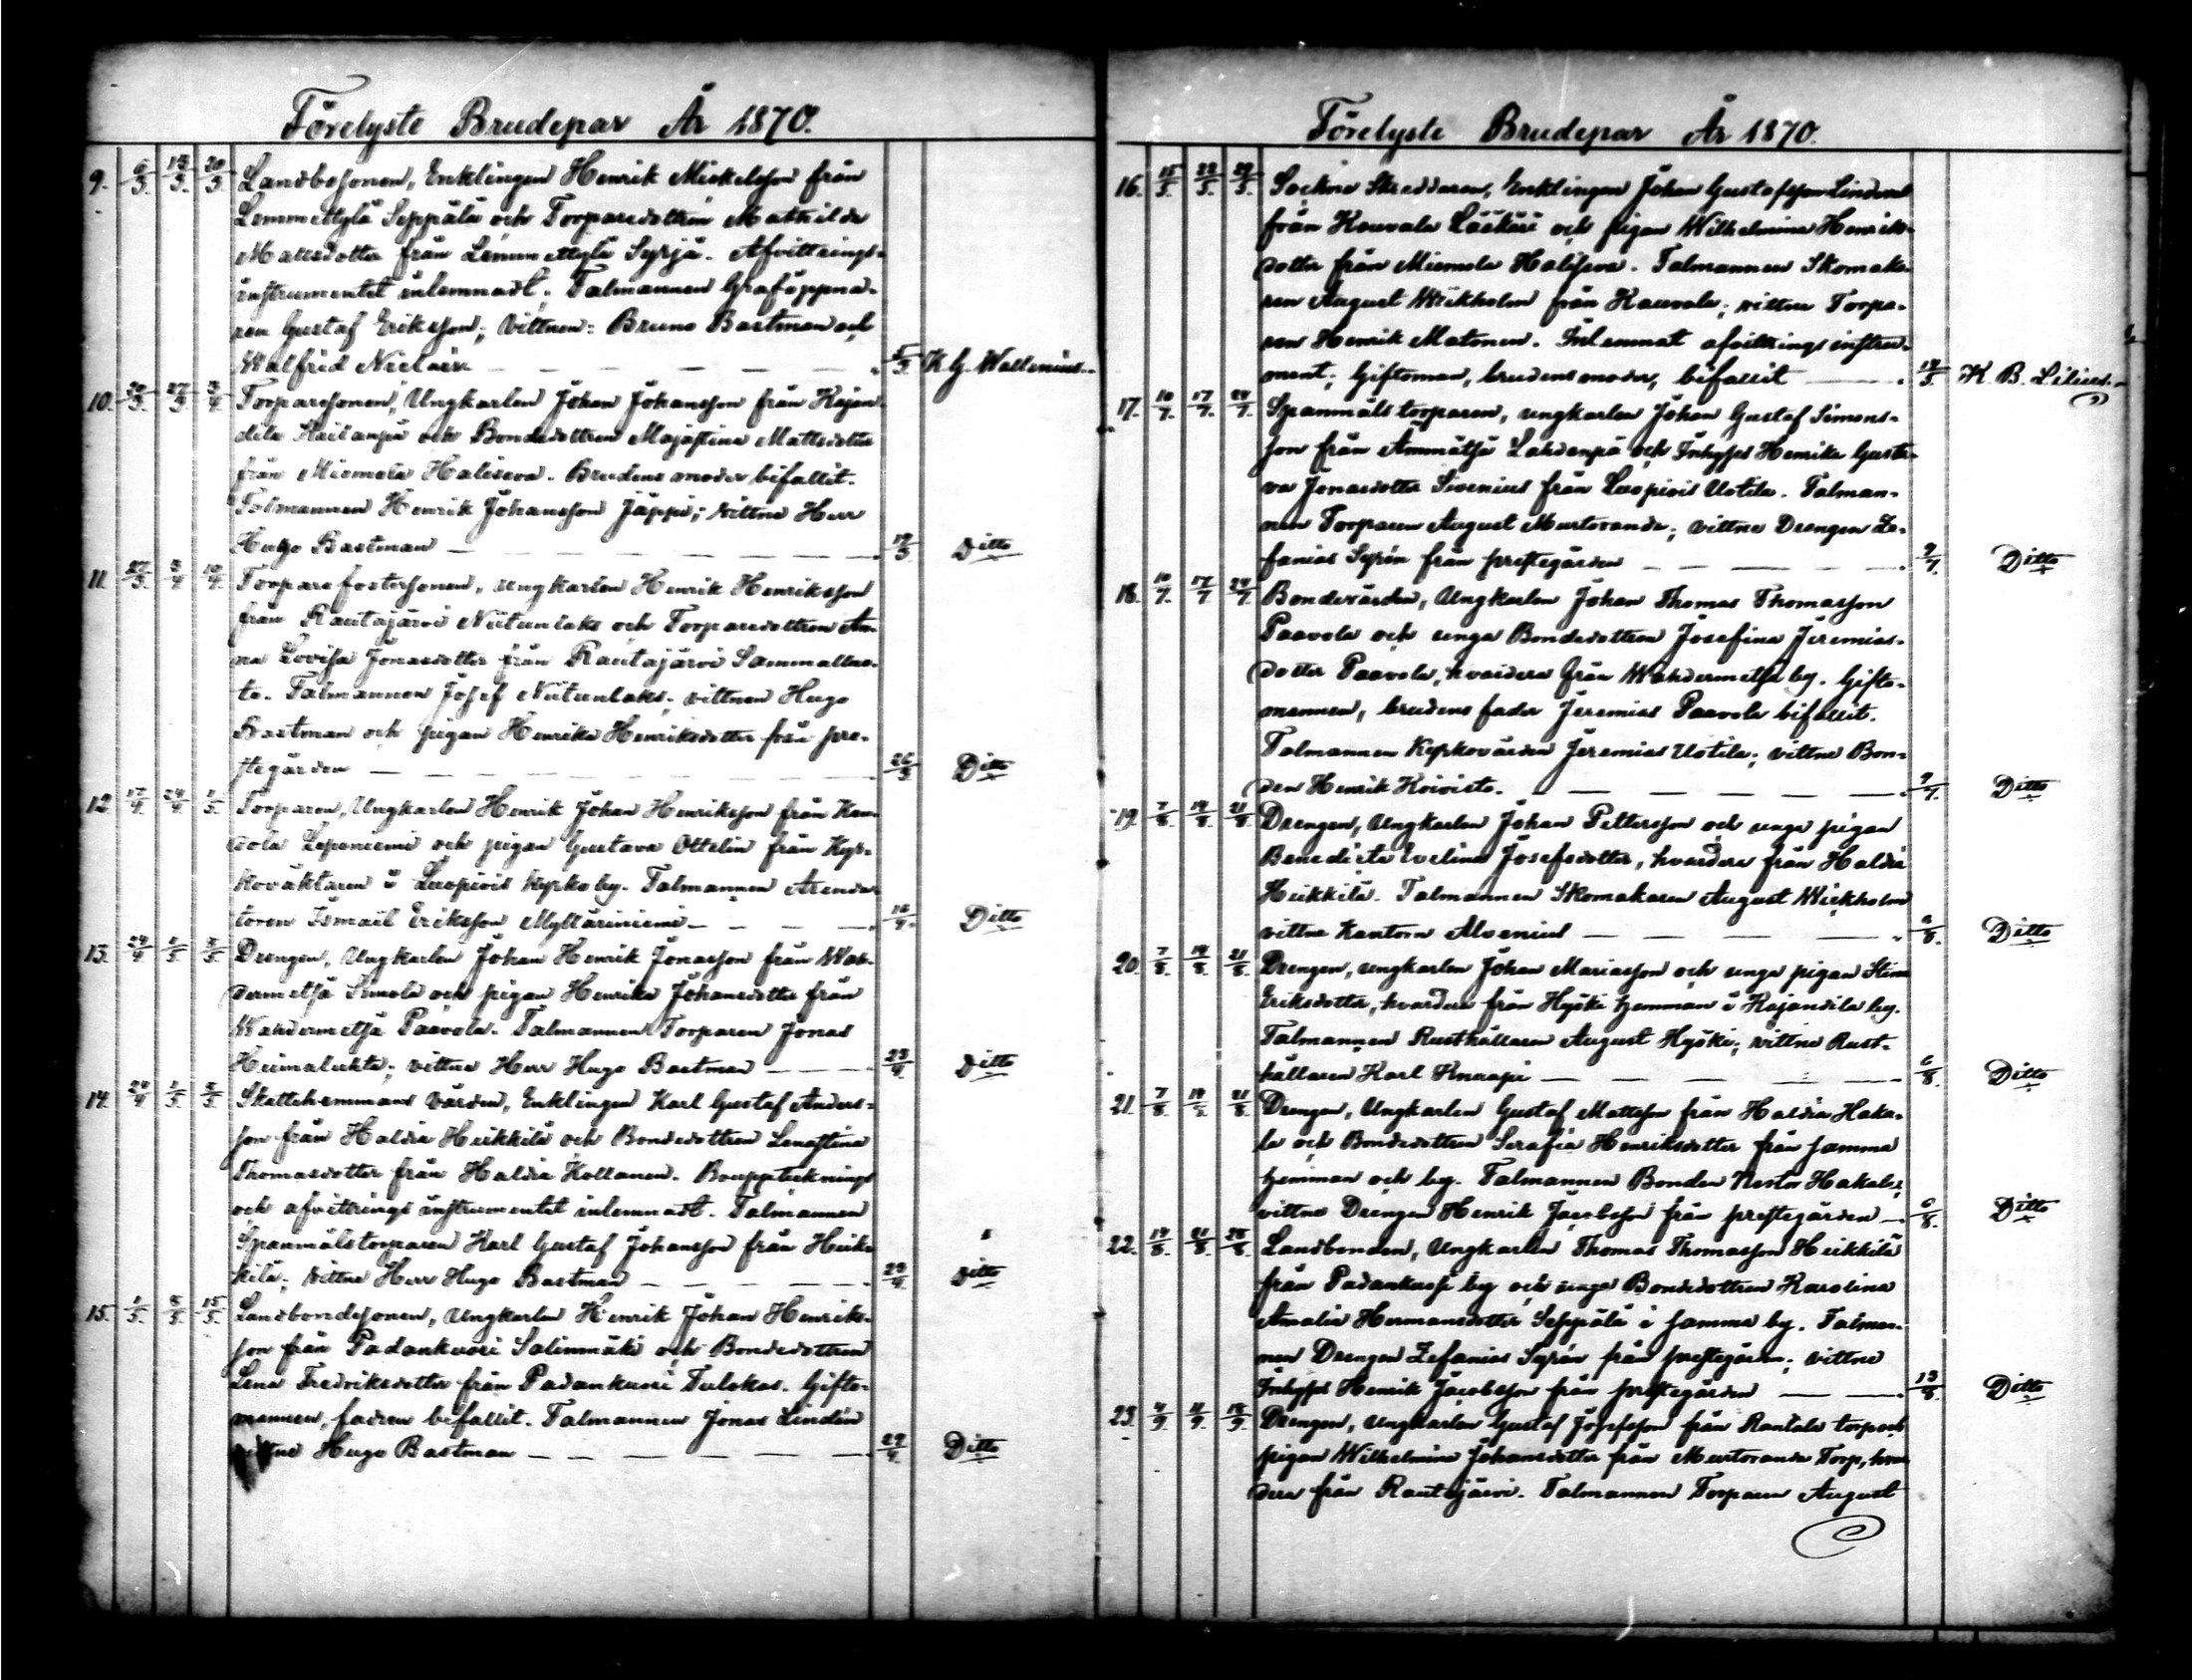 Förelyste Brudepar År 1870.
9. 6/3 13/3 20/3 Landbosonen, Enklingen Henrik Mickelsson från
Lemmettylä Seppälä och Torparedottren Mathilda
Mattsdotter från Lemmettylä Syrjä. Afvittrings-
instrumentet inlemnadt; Talmannen Graföppna-
ren Gustaf Eriksson; vittnen: Bruno Bastman och
Walfrid — — — 5/3 K. G. Wallenius
10. 20/3 27/3 3/4 Torparesonen, Ungkarlen Johan Johansson från Kajan-
dila och Bondedottren Majastina Mattsdotter
från Miemola Haliseva. Brudens moder bifallit.
Talmannen Henrik Johansson Jäppi; vittne Herr
Hugo Bastman — — — 19/3 Ditto
11. 27/3 3/4 10/4 Torparefostersonen, ungkarlen Henrik Henriksson
från Rautajärvi Niitunlaks och Torparedottren An-
na Lovisa Jonasdotter från Rautajärvi Sammallus-
to. Talmannen Josef Niitunlaks; vittnen Hugo
Bastman och pigan Henrika Henriksdotter från pre-
stegården — — — 26/3 Ditto
12. 17/4 24/4 1/5 Torparen, Ungkarlen Henrik Johan Henriksson från
Leponiemi och pigan Gustava Ottelin från Kyr-
koväktaren i Luopiois Kyrkoby. Talmannen Arenda-
toren Ismail Eriksson Mylläriniemi — — — 16/4 Ditto
13. 24/4 1/5 8/5 Drengen, Ungkarlen Johan Henrik Jonasson från Wah-
dermetsä Simola och pigan Henrika Johansdotter från
Wahdermetsä Paavola. Talmannen Torparen Jonas
vittne Herr Hugo Bastman — — — 23/4 Ditto
14. 24/4 1/5 8/5 Skattehemmans värden, Enklingen Karl Gustaf Anders-
son från Haldia Heikkilä och Bondedottren Lenastina
Thomasdotter från Haldia Kollanen. Bouppteckning
och afvittrings instrumentet inlemnadt. Talmannen
Spanmålstorparen Karl Gustaf Johansson från Heik-
kilä; vittne Herr Hugo Bastman — — — 23/4 Ditto
15. 1/5 8/5 15/5 Landbondesonen, Ungkarlen Henrik Johan Henriks-
son från Padankoski Salinmäki och Bondedottren
Lena Fredriksdotter från Padankoski Tulokas. Gifto-
mannen, fadren bifallit. Talmannen Jonas Lindén
vittne Hugo Bastman — — — 29/4 Ditto
Förelyste Brudepar År 1870.
16. 15/5 22/5 29/5 Sockne Skreddaren, Enklingen Johan Gustafsson
från Kouvala och pigan Wilhelmina Henriks-
dotter från Miemola Haliseva. Talmannen Skomaka-
ren August Wickholm från Kouvala; vittne Torpa-
ren Henrik Matonen. Inlemnat afvittrings instru-
ment; Giftoman, brudens moder, bifallit — 14/5 K. B. Lilius
17. 10/7 17/7 24/7 Spanmåls torparen, ungkarlen Johan Gustaf Simons-
son från Ämmätsä Lahdenpä och Inhyses Henrika Gusta-
va Jonasdotter Sivenius från Luopiois Uotila. Talman-
nen Torparen August Murtoranda; vittne Drengen Ze-
fanias Syrén från prestegården — — — 9/7 Ditto
18. 10/7 17/7 24/7 Bondevärden, Ungkarlen Johan Thomas Thomasson
Paavola och unga Bondedottren Josefina Jeremias-
dotter Paavola, hvardera från Wahdermetsä by. Gifto-
mannen, brudens fader Jeremias Paavola bifallit.
Talmannen Kyrkovärden Jeremias Uotila; vittne Bon-
den Henrik Koivisto. — — — 9/7 Ditto
19. 7/8 14/8 21/8 Drengen, Ungkarlen Johan Pettersson och unga pigan
Benedicta Evelina Josefsdotter, hvardera från Haldia
Heikkilä. Talmannen Skomakaren August Wickholm
vittne Kantorn Alvenius — — — 6/8 Ditto
20. 7/8 14/8 21/8 Drengen, ungkarlen Johan Mariasson och unga pigan Stina
Eriksdotter, hvardera från Hyöki hemman i Kajandila by.
Talmannen Rusthållaren August Hyöki; vittne Rust-
hållaren Karl Knaapi — — — 6/8 Ditto
21. 7/8 14/8 21/8 Drengen, Ungkarlen Gustaf Mattsson från Haldia Haka-
la och Bondedottren Serafia Henriksdotter från samma
hemman och by. Talmannen Bonden Nestor Hakala;
vittne Drengen Henrik Jacobsson från prestegården — 6/8 Ditto
22. 14/8 21/8 28/8 Landbonden, Ungkarlen Thomas Thomasson Heikkilä
från Padankoski by och unga Bondedottren Karolina
Amalia Hermansdotter Seppälä i samma by. Talman-
nen Drengen Zefanias Syrén från prestegården; vittne
Inhyses Henrik Jacobsson från prestegården — — 13/8 Ditto
23. 4/9 11/9 18/9 Drengen, Ungkarlen Gustaf Josefsson från Rantala torp och
pigan Wilhelmina Johansdotter från Murtoranda Torp, hvar-
dera från Rautajärvi. Talmannen Torparen August